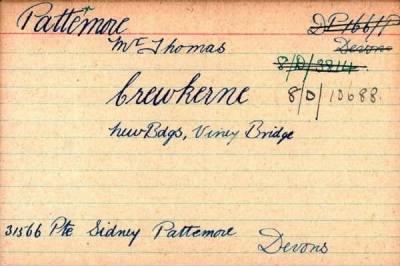 Pattemore
Mr Thomas
DP 166/P
Devons
8/D/3814
Crewkerne
8/D/10688.
New Bdgs, Viney Bridge
31566 Pte Sidney Pattemore
Devons